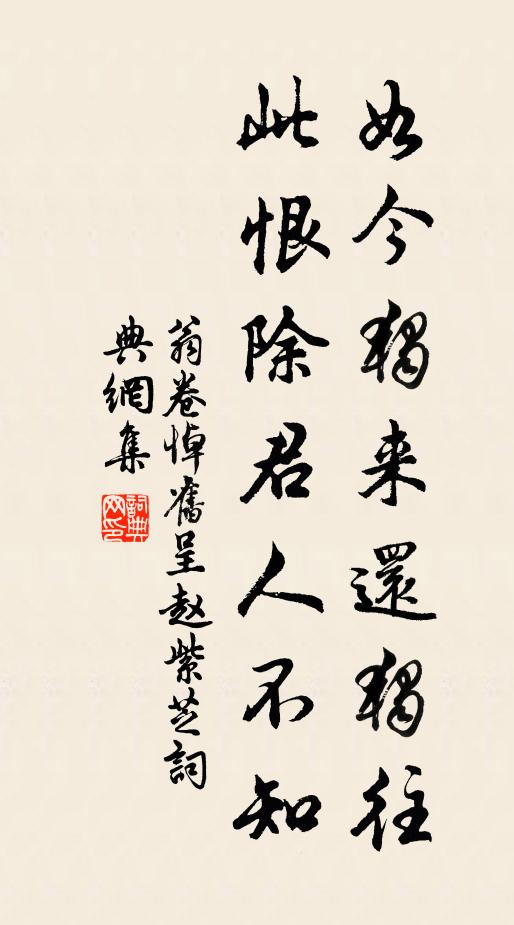 如今獨来還獨往
此恨除君人不知
翁卷悼舊呈趙紫芝詞
典網集
詞典網印